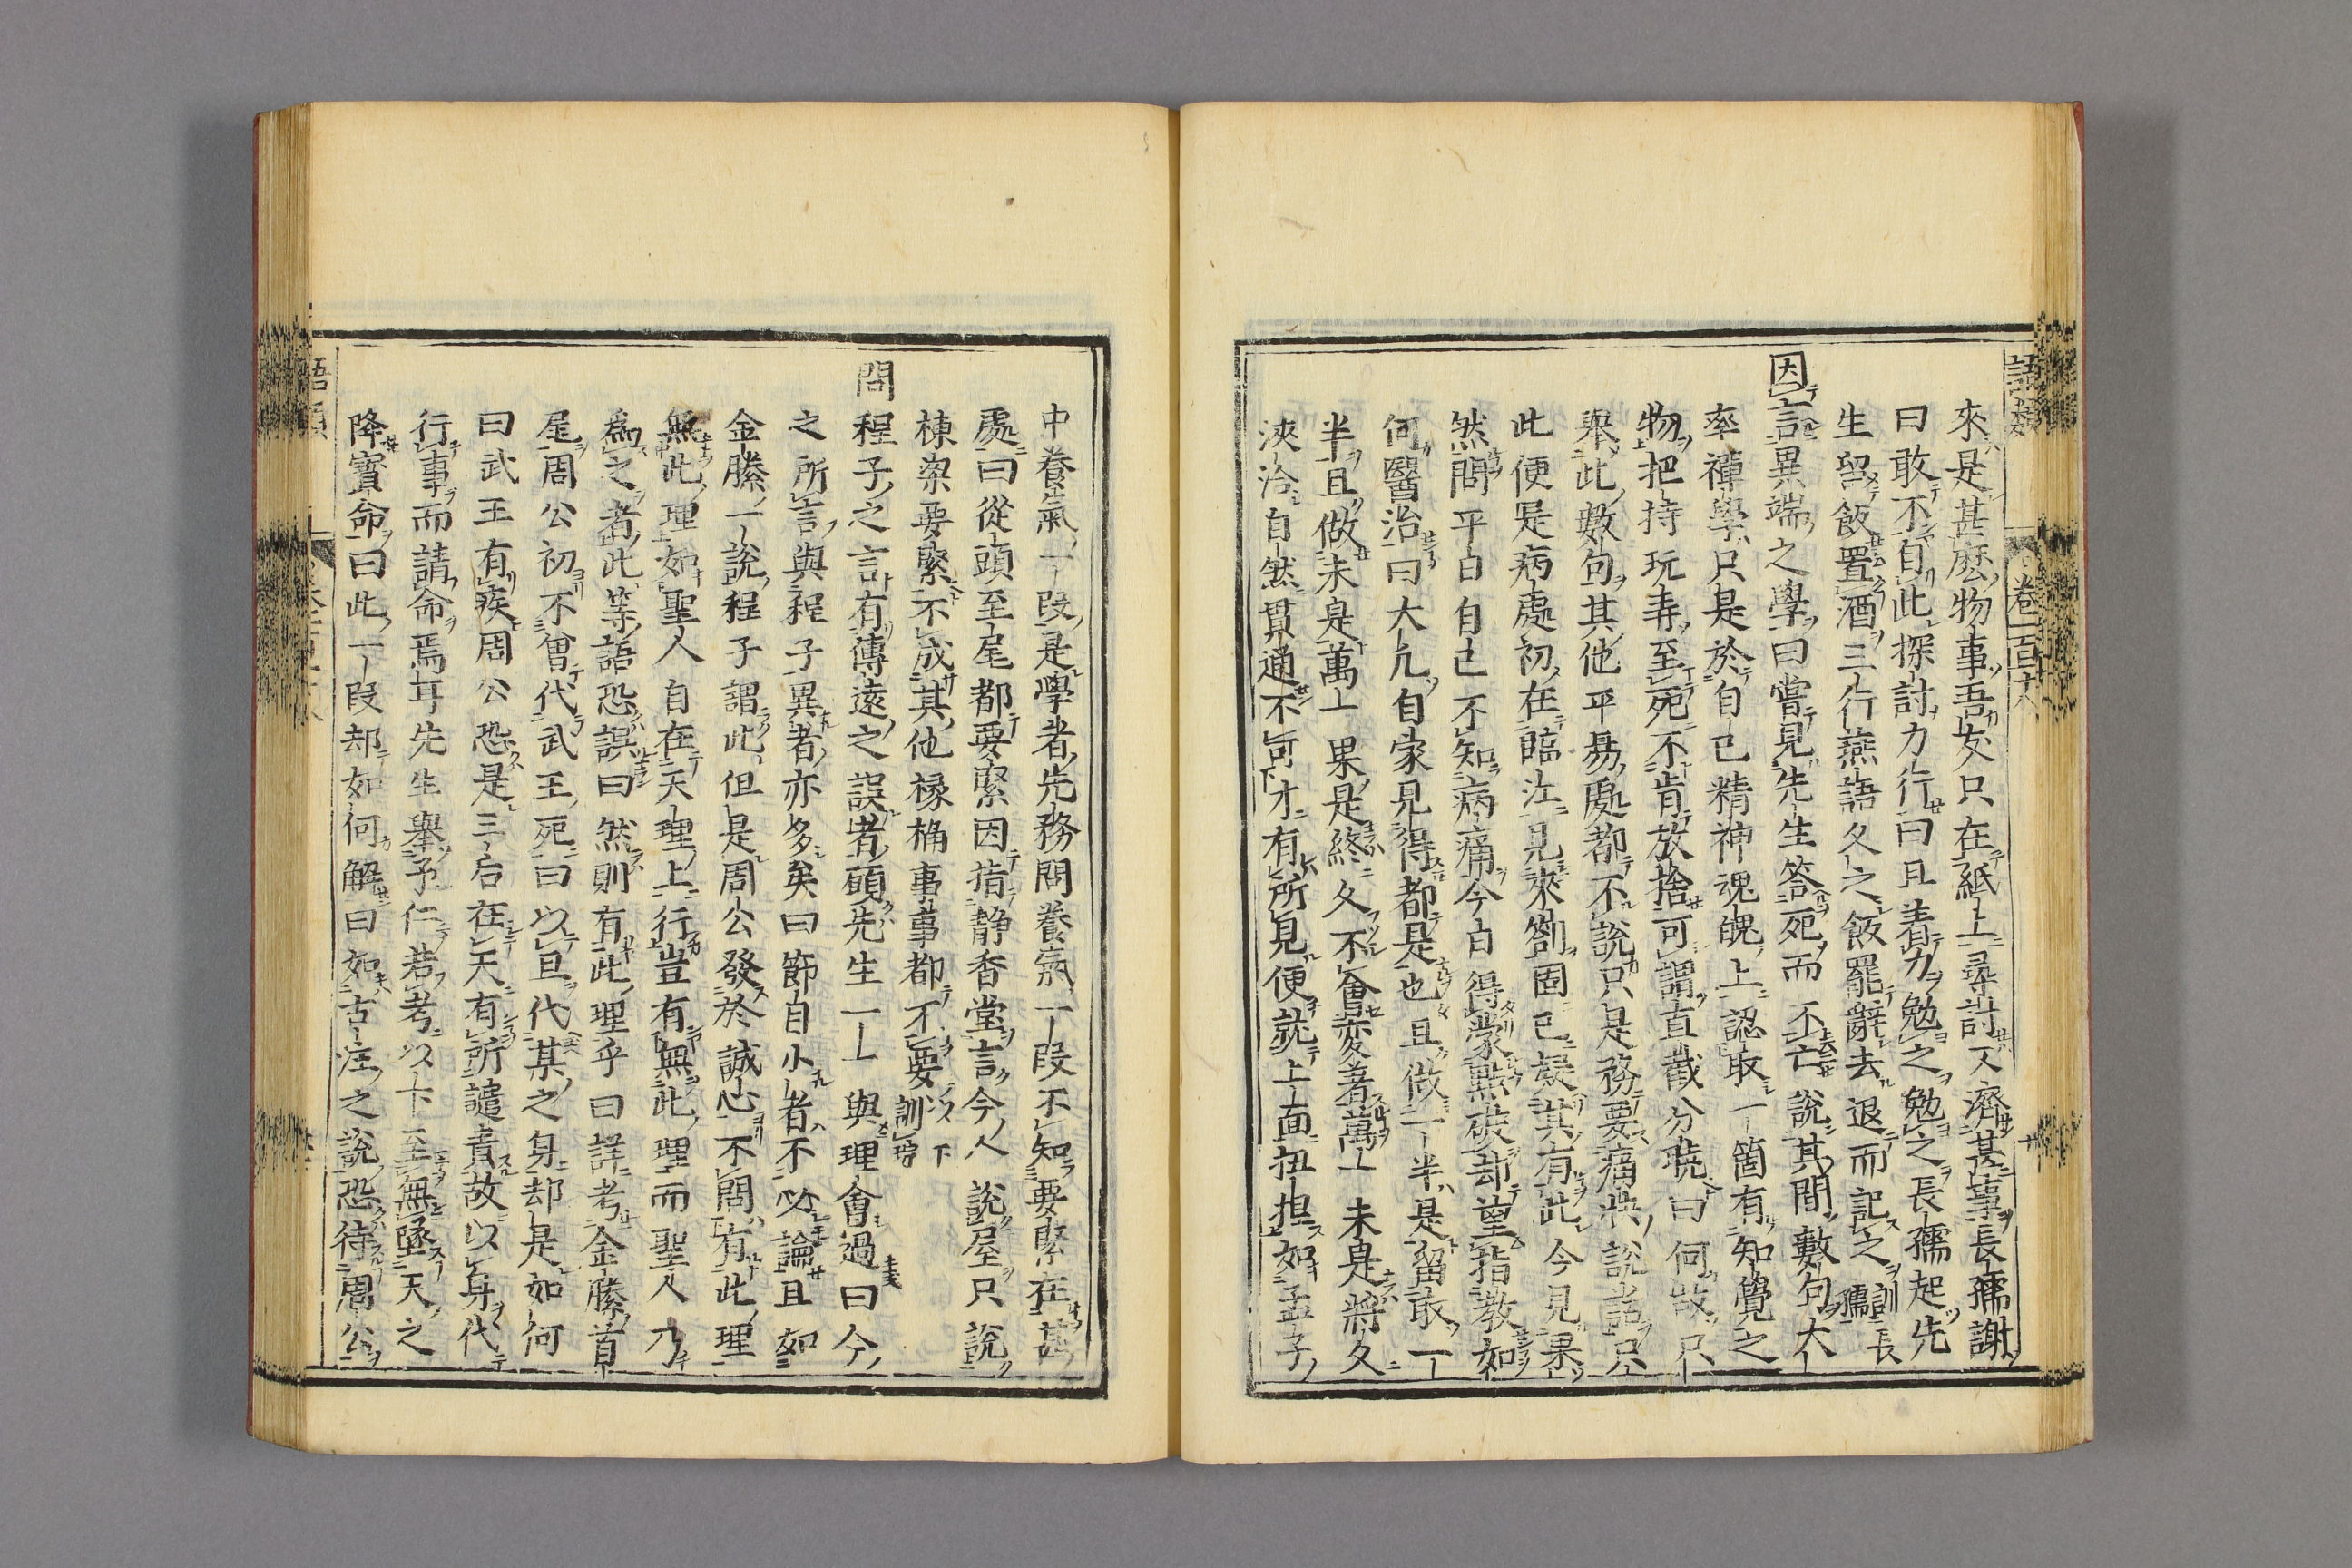 語類
卷一百十八
來是甚麽物事吾友只在紙上尋討又濟甚事長孺謝
曰敢不自此探討力行曰且着力勉之勉之長孺起先
生留飯置酒三行燕語久之飯罷辭去退而記之訓長孺
因言異端之學曰嘗見先生答死而不亡說其間數句大
率禪學只是於自己精神魂魄上認取一箇有知覺之
物把持玩弄至死不肯放捨可謂直截分曉曰何故只
舉此數句其他平易處都不說只是務要痛快說話只
此便是病處初在臨江見來劄固已疑其有此今見果
然問平日自己不知病痛今日得蒙點破却望指教如
何醫治曰大凡自家見得都是也且做一半是留取一
半且做未是萬一果是終久不會變著萬一未是將久
浹洽自然貫通不可才有所見便就上面扭捏如孟子
中養氣一段是學者先務問養氣一段不知要緊在甚
處曰從頭至尾都要緊因指靜香堂言今人說屋只說
棟梁要緊不成其他椽桷事事都不要以下訓琮
問程子之言有傳遠之誤者願先生一一與理會過曰今
之所言與程子異者亦多矣曰節目小者不必論且如
金縢一說程子謂此但是周公發於誠心不問有此理
無此理如聖人自在天理上行豈有無此理而聖人乃
爲之者此等語恐誤曰然則有此理乎曰詳考金縢首
尾周公初不曾代武王死曰以旦代某之身却是如何
曰武王有疾周公恐是三后在天有所譴責故以身代
行事而請命焉耳先生舉予仁若考以下至無墜天之
降寶命曰此一段却如何解曰如古注之說恐待周公